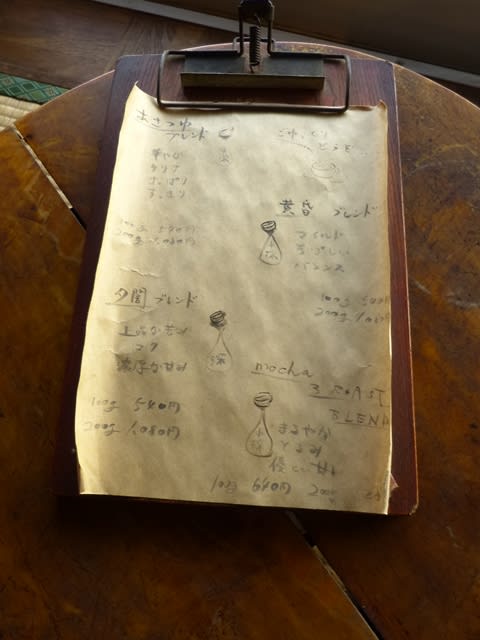 あさつゆ
ブレンド
華やか
クリア
さっぱり
すっきり
100g 540円
200g 1,080円
ごゆっくり
どうぞ...
黄昏 ブレンド
マイルド
香ばしい
バランス
100g 540円
200g 1,080円
夕闇 ブレンド
上品な苦み
コク
濃厚な甘み
深
100g 540円
200g 1,080円
mocha
3 ROAST
BLEND
まるやか
とろみ
優しい甘み
100g 640円 200g